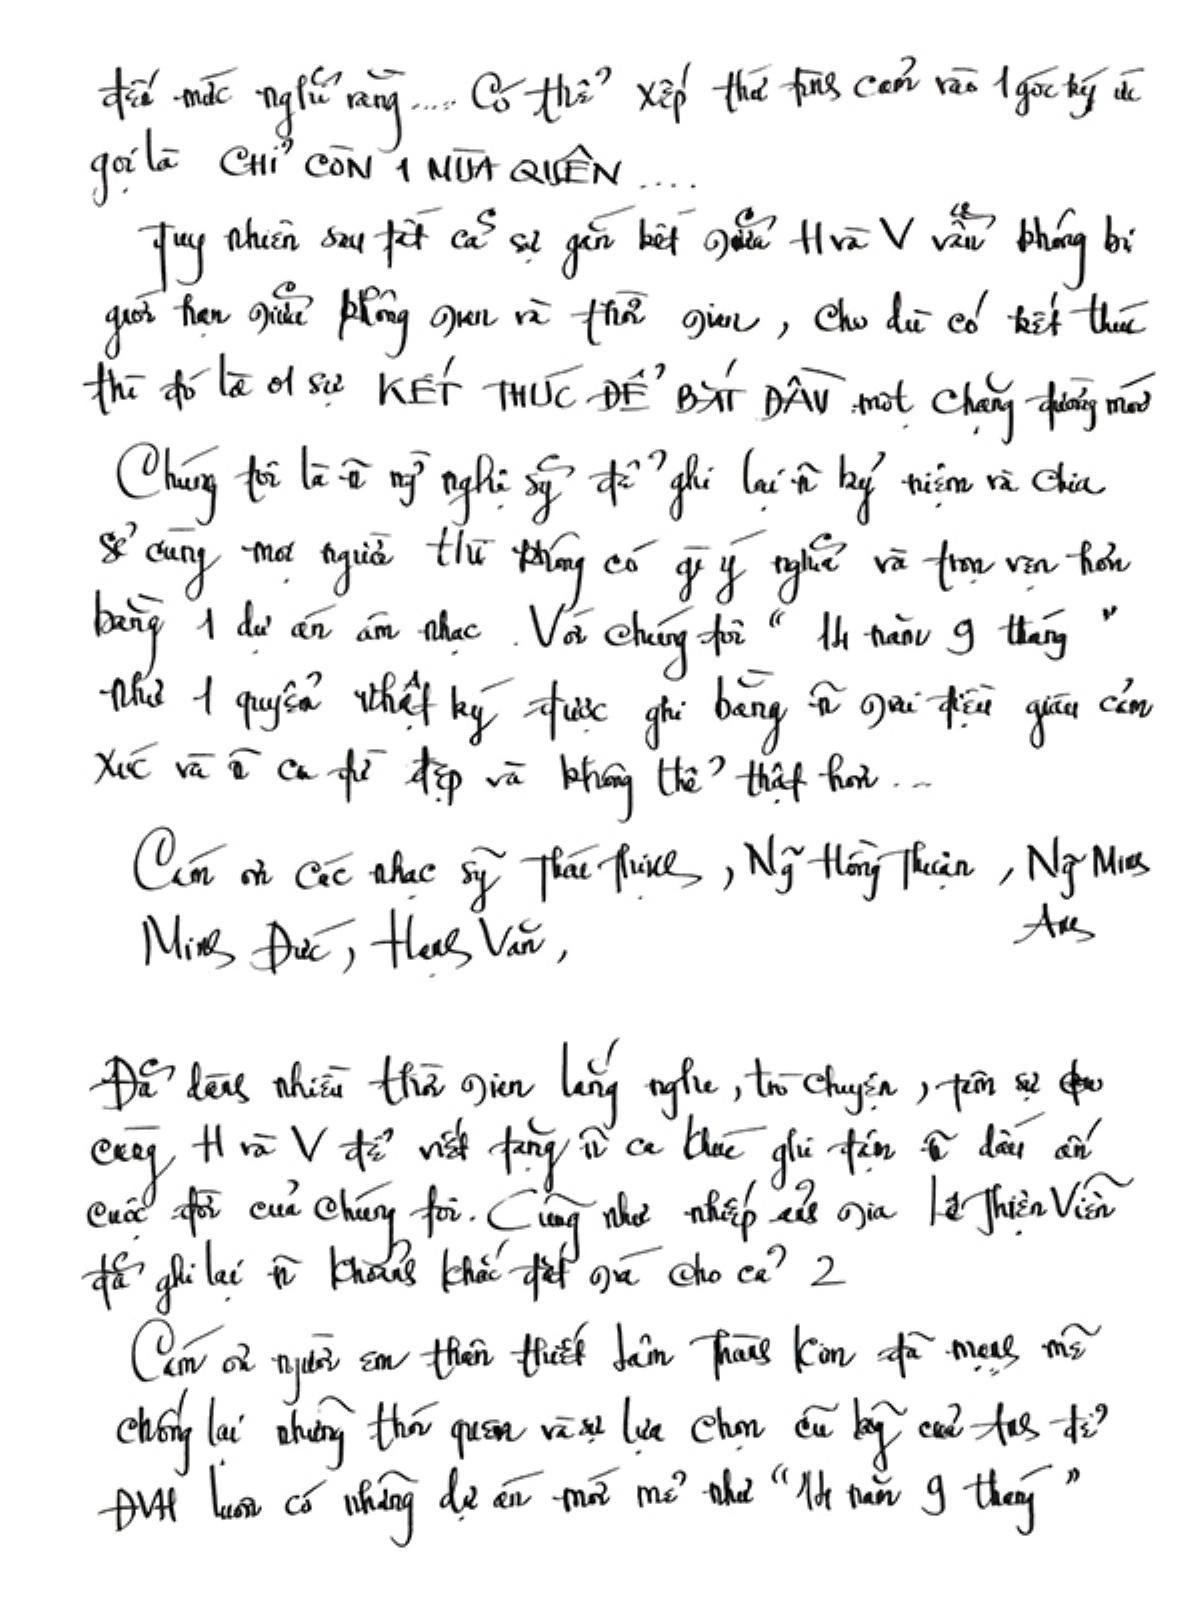 đến mức nghĩ rằng..... Có thể xếp thứ tình cảm vào 1 góc ký ức
gọi là CHỈ CÒN 1 MÙA QUÊN ....
Tuy nhiên sau tất cả sự gắn kết giữa H và V vẫn không bị
giới hạn giữa không gian và thời gian, cho dù có kết thúc
thì đó là 01 sự KẾT THÚC ĐỂ BẮT ĐẦU một chặng đường mới
Chúng tôi là ~n nghệ sỹ để ghi lại ~n kỷ niệm và chia
sẻ cùng mọi người thì không có gì ý nghĩa và trọn vẹn hơn
bằng 1 dự án âm nhạc. Với chúng tôi “ 14 năm 9 tháng ”
như 1 quyển nhật ký được ghi bằng ~n giai điệu giàu cảm
xúc và ~n ca từ đẹp và không thể thật hơn ...
Cám ơn các nhạc sỹ Thái Thịnh, Ng~ Hồng Thuận, Ng~ Minh
Anh
Minh Đức, Hạnh Văn,
Đã dành nhiều thời gian lắng nghe, trò chuyện, tâm sự
cùng H và V để viết tặng ~n ca khúc ghi đậm ~n dấu ấn
cuộc đời của chúng tôi. Cũng như nhiếp ảnh gia Lê Thiện Viễn
đã ghi lại ~n khoảnh khắc đắt giá cho cả 2
Cám ơn người em thân thiết Lâm Thành Kim đã mạnh mẽ
chống lại những thói quen và sự lựa chọn cũ kỹ của Anh để
ĐVH luôn có những dự án mới mẻ như “14 năm 9 tháng”